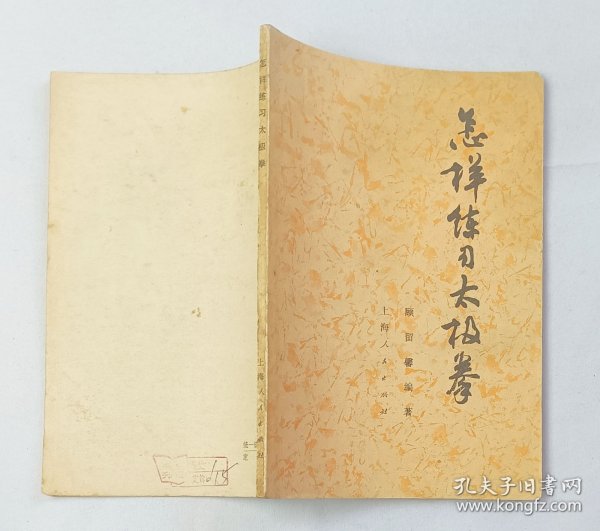 怎样练习太极拳
顾留馨编著
上海人民出版社
怎样练习太极拳
上海人民出版社
孔夫子旧书网
www.kongfz.com